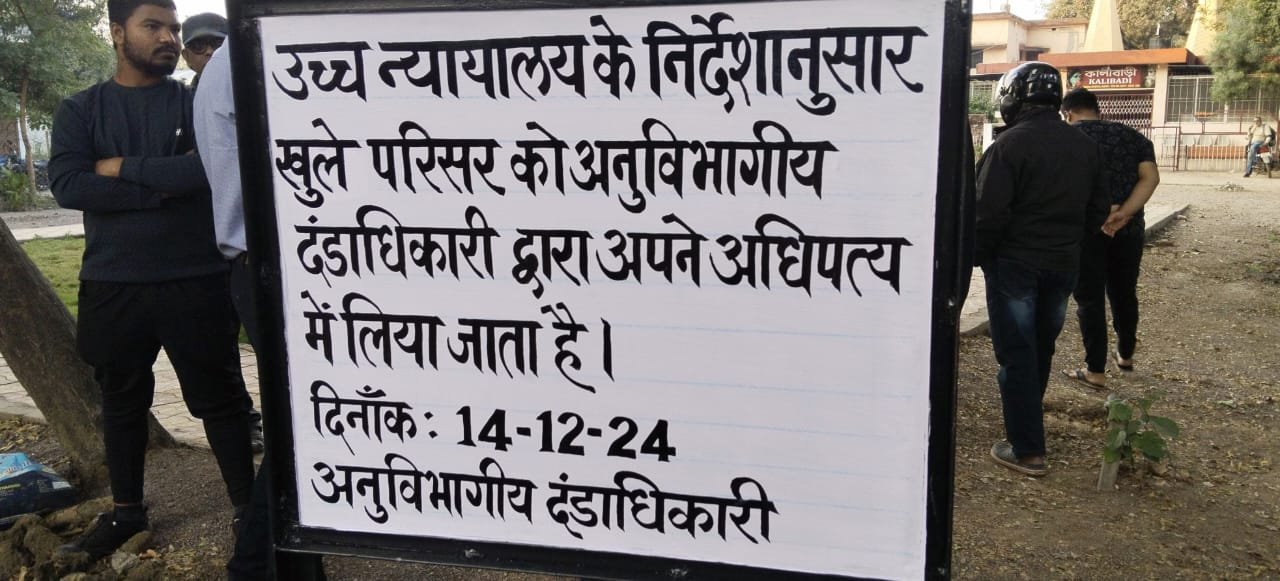 उच्च न्यायालय के निर्देशानुसार
खुले परिसर को अनुविभागीय
दंडाधिकारी द्वारा अपने अधिपत्य
में लिया जाता है।
दिनाँक: 14-12-24
अनुविभागीय दंडाधिकारी
কালীবাড়ী
KALIBADI